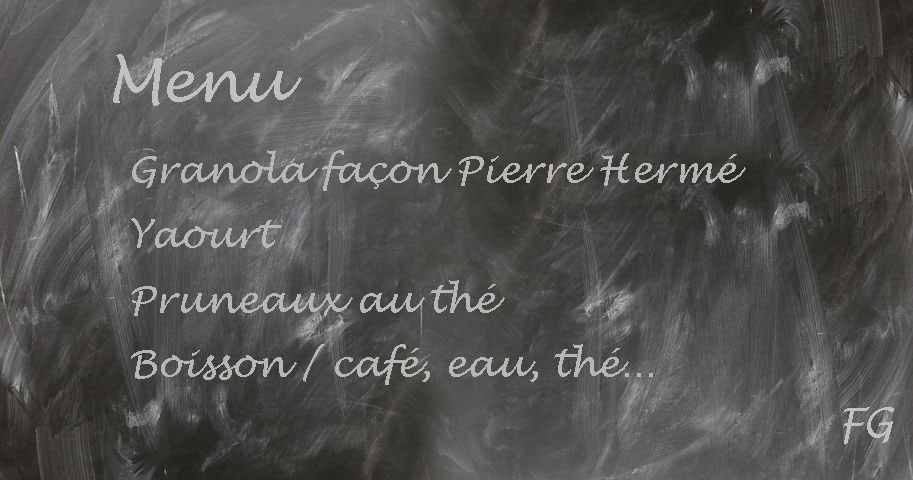 Menu
Granola façon Pierre Hermé
Yaourt
Pruneaux au thé
Boisson / café, eau, thé...
FG